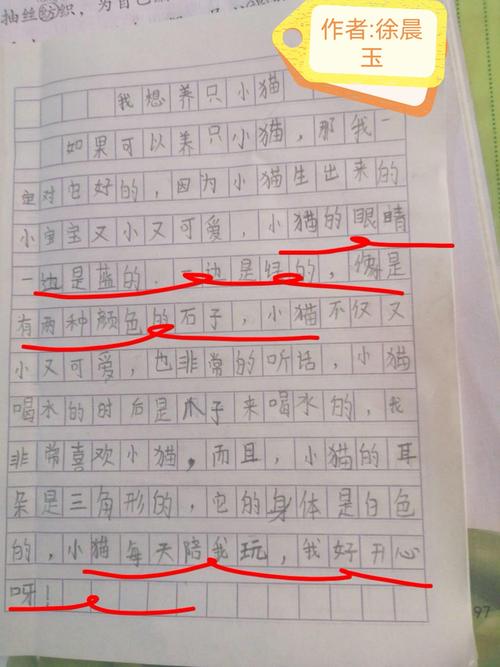 抽丝纺织,为自己
作者:徐晨
玉
我想养只小猫
如果可以养只小猫,那我一
定对它好的,因为小猫生出来的
小宝宝又小又可爱,小猫的眼睛
一边是蓝的.一边是绿的,像是
有两种颜色的石子,小猫不仅又
小又可爱,也非常的听话,小猫
喝水的时后是爪子来喝水的,我
非常喜欢小猫,而且,小猫的耳
朵是三角形的,它的身体是白色
的,小猫每天陪我玩,我好开心
呀!
97